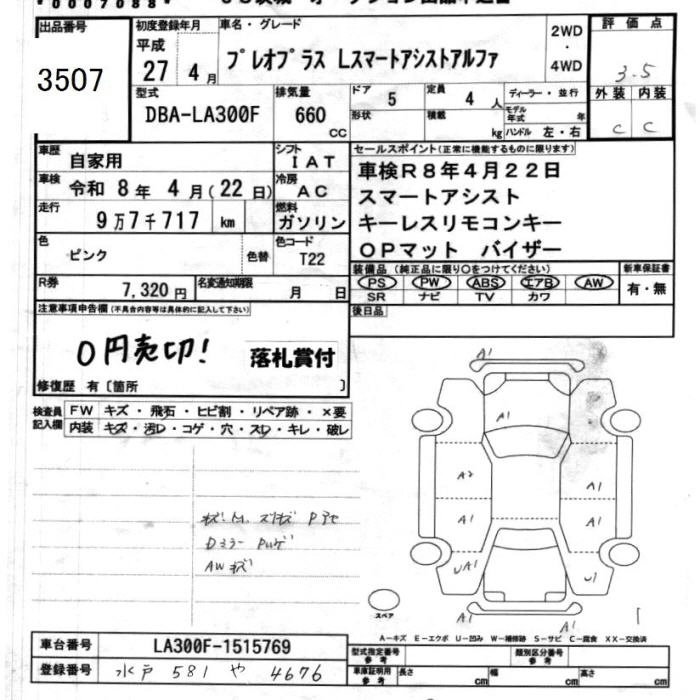 *0007088*
出品番号 初度登録年月 車名・グレード 2WD・4WD 評価点
3507 平成27年4月 プレオプラス Lスマートアシストアルファ 3.5
型式 排気量 ドア 5 定員 4人 ディーラー・並行 外装 内装
DBA-LA300F 660cc 形状 積載 kg モデル年式 年 ハンドル 左・右 C C
車歴 自家用 シフト IAT セールスポイント(正常に機能するものに限ります)
車検 令和8年4月(22日) 冷房 AC 車検R8年4月22日
スマートアシスト
走行 9万7千717 km 燃料 ガソリン キーレスリモコンキー
色 ピンク 色替 色コード T22 OPマット バイザー
装備品(純正品に限り○をつけてください) 新車保証書
R券 7,320円 名変通知期限 月 日 PS PW ABS エアB AW 有・無
SR ナビ TV カワ
注意事項申告欄(不具合内容等は具体的に記入して下さい) 後日品
0円売切!
落札賞付
修復歴 有〔箇所 〕
検査員記入欄 FW キズ・飛石・ヒビ割・リペア跡・×要
内装 キズ・汚レ・コゲ・穴・スレ・キレ・破レ
A1
A1
A2 A1
A1 A1
UA1 U1
A1 A1
Dミラー
AWキズ
スペア
A-キズ E-エクボ U-凹み W-補修跡 S-サビ C-腐食 XX-交換済
車台番号 LA300F-1515769 型式指定番号 参考 類別区分番号 参考
登録番号 水戸 581 や 4676 車庫証明用 参考 長さ cm 幅 cm 高さ cm